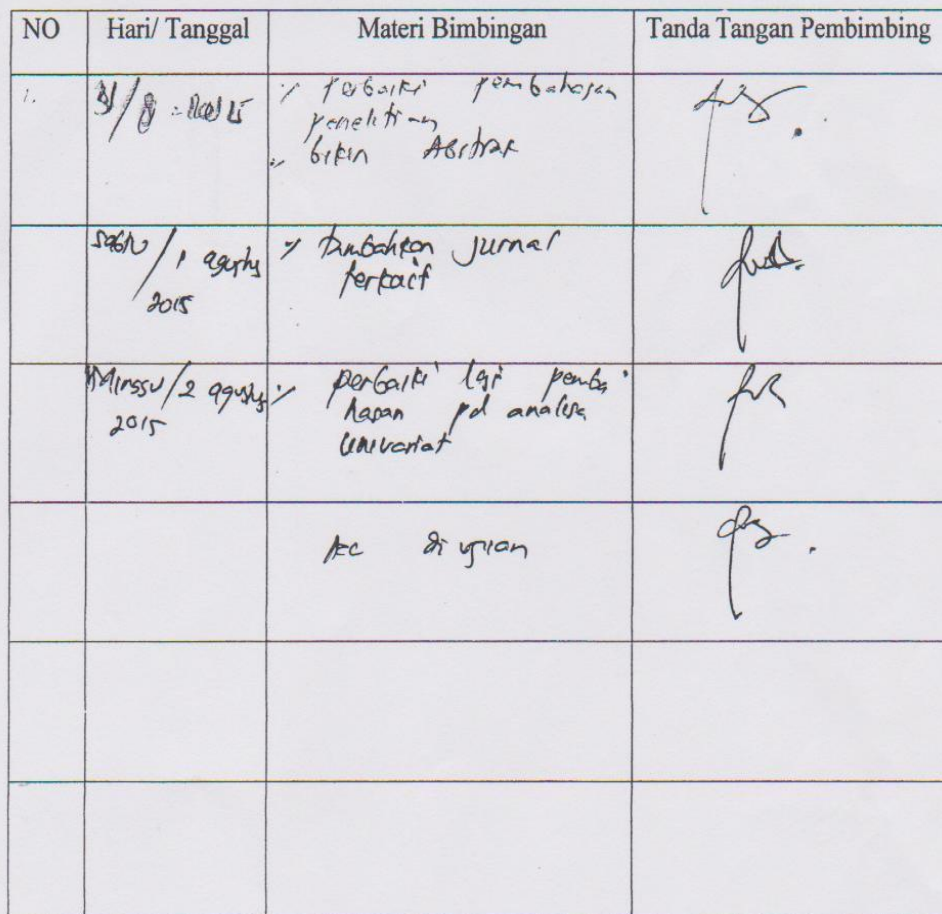 NO Hari/ Tanggal Materi Bimbingan Tanda Tangan Pembimbing
1. 31/8 - 2015 perbaiki pembahasan
penelitian
bikin Abstrak
Sabtu / 1 agustus tambahkan jurnal
2015 terkait
Minggu / 2 agustus perbaiki lagi pemba
2015 hasan pd analisa
univariat
Acc di ujian